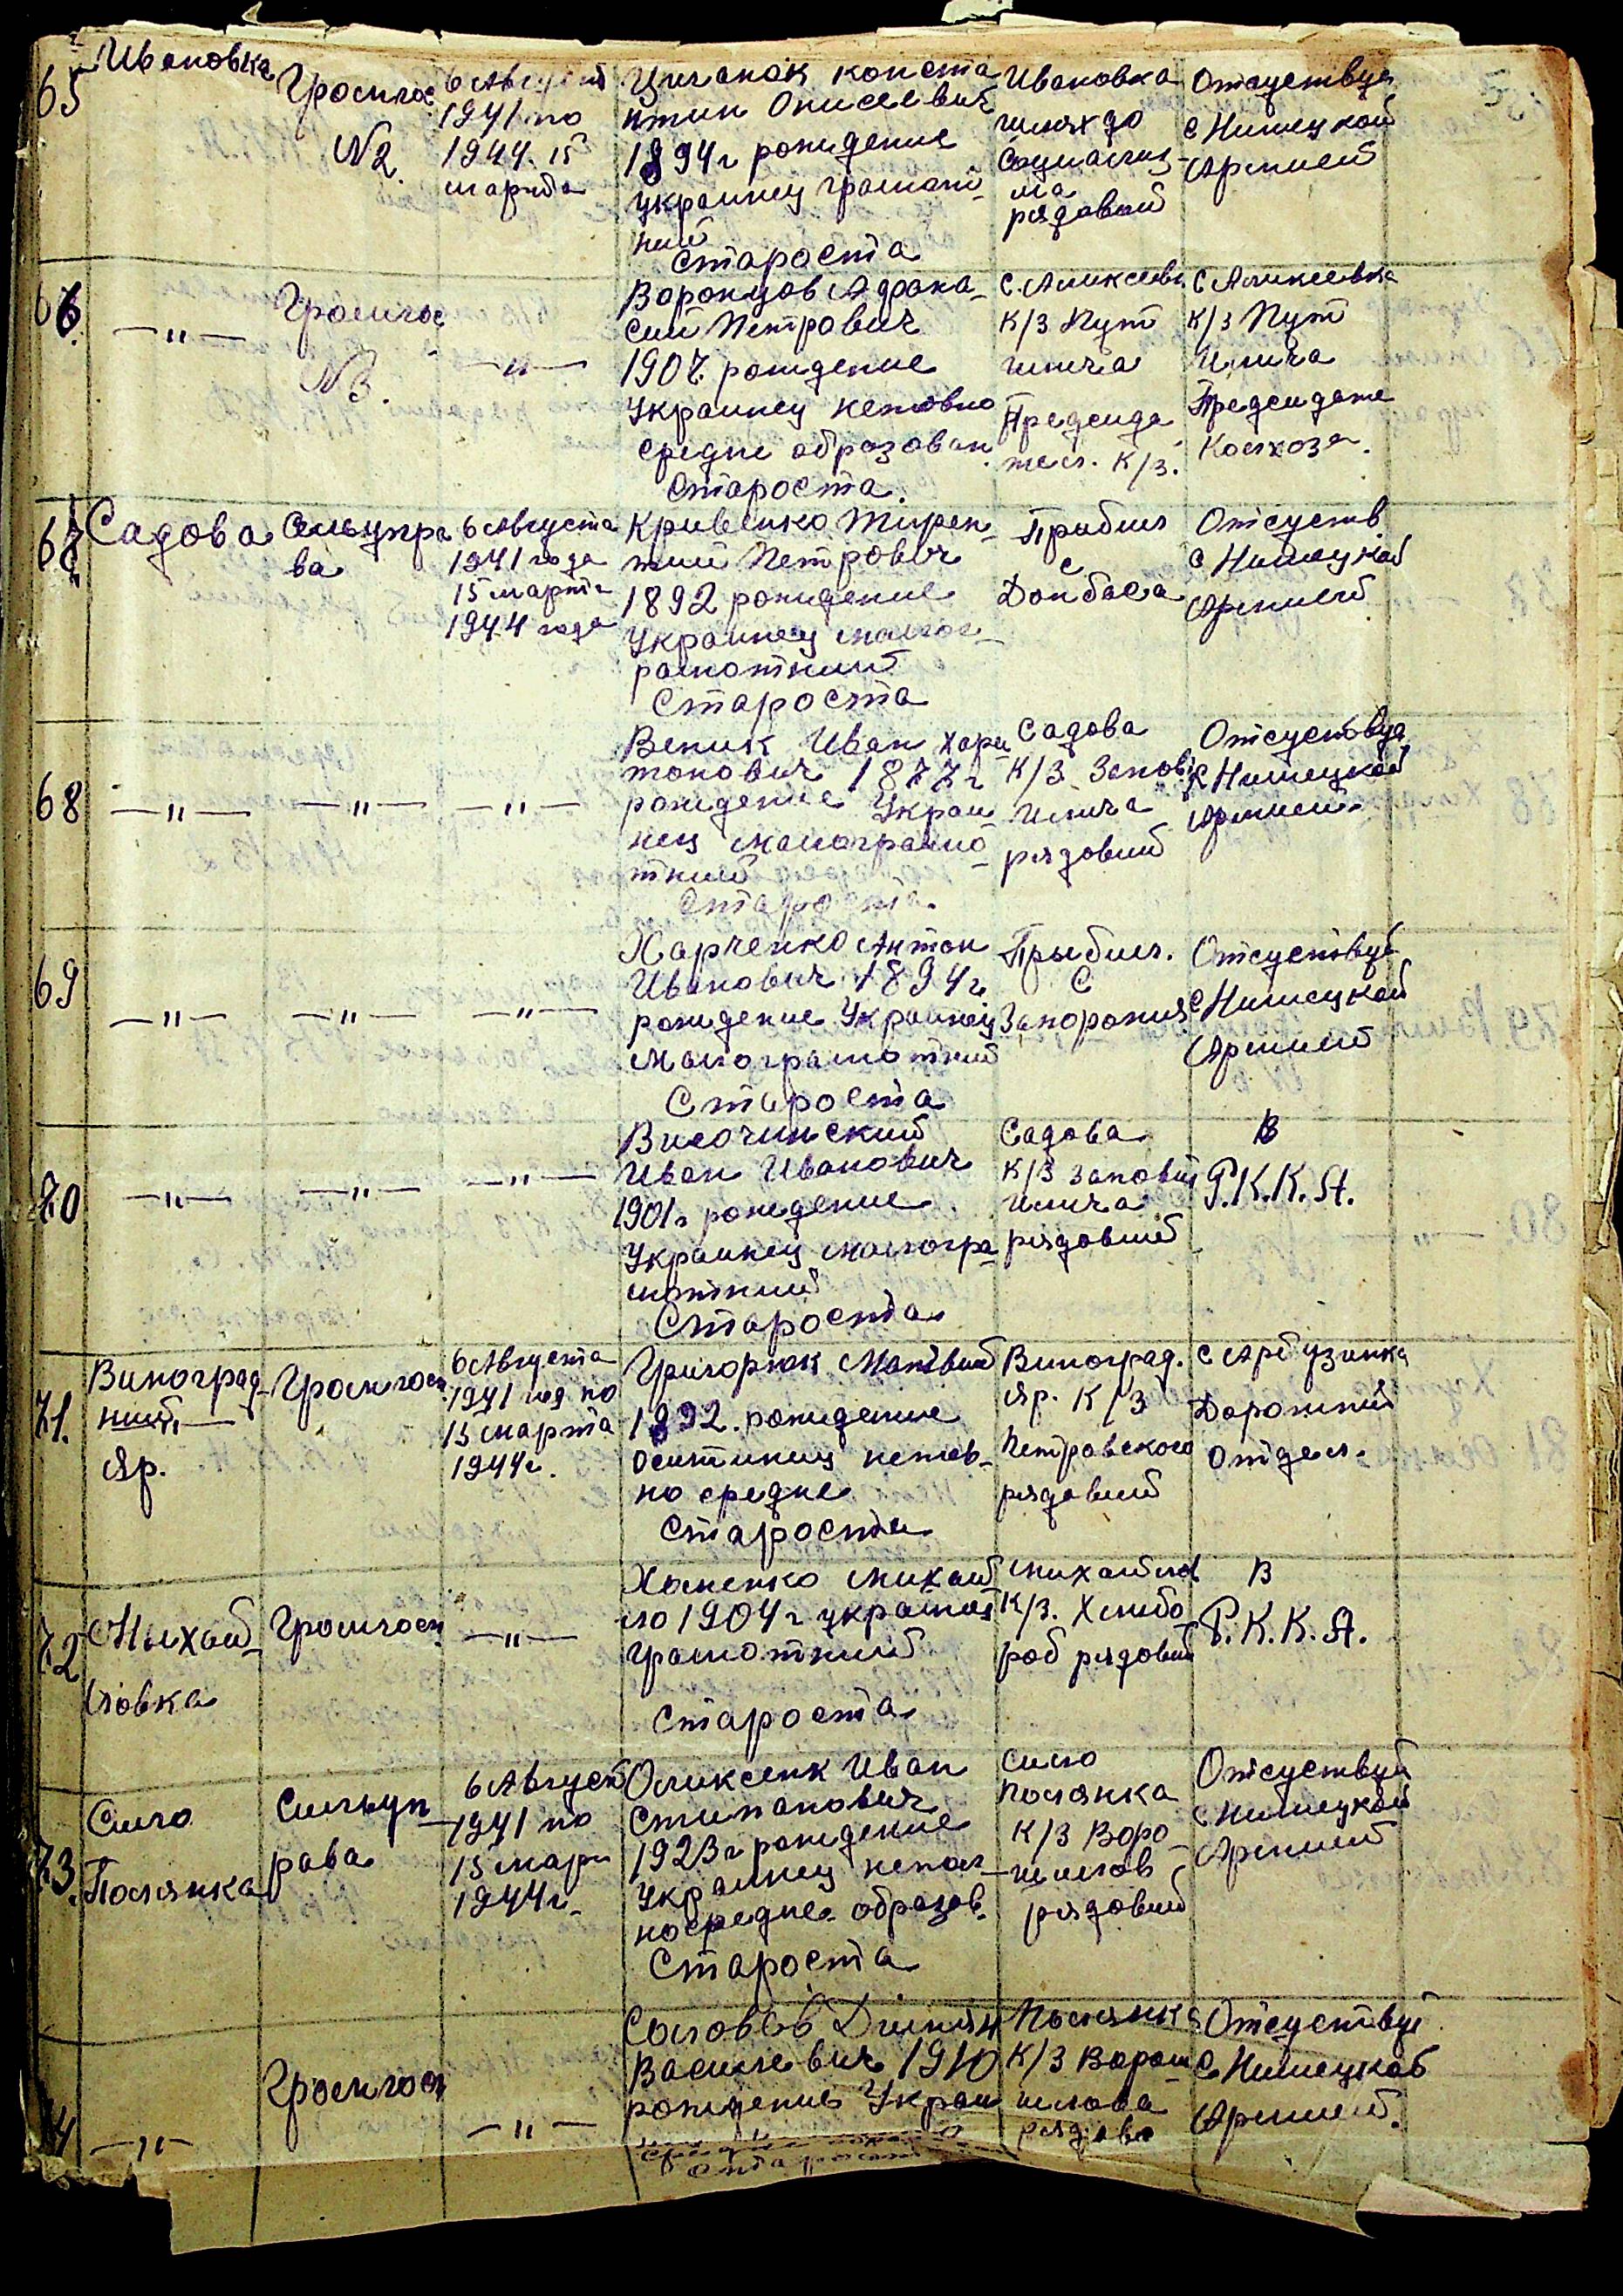 65
Ивановка
Громгос
№2.
6 Август
1941 по
1944. 15
марта
Циганок конста
нтин Онисеевич
1894 г рождение
украинец грамот-
ний
Староста
Ивановка
шлях до
Социализ-
ма
рядовой
Отсуствуя
с Нимецкой
Армией
66.
—"—
Громгос
№3.
—"—
Воронцов Афона-
сий Петрович
1907. рождение
Украинец неповно
средне образован.
Староста.
С. Аликсеевк
К/З Пут
илича
Предсида
тел. К/з.
С Аликсеевка
К/з Пут
Илича
Предсидате
Колхоза.
67
Садова
Сельупра
ва
6 Августа
1941 года
15 марта
1944 года
Кривенко Тирен-
тий Петрович
1892 рождение
Украинец малог-
рамотний
Староста
Прибил
с
Донбаса
Отсуств
с Нимецкой
Армией
68
—"—
—"—
—"—
Веник Иван Хари
тонович 1877 г
рождение Украи
нец малограмо-
тний
Староста.
Садова
К/З Запов.
Илича
рядовий
Отсуствуя
с Нимецкой
Армией.
69
—"—
—"—
—"—
Харченко Антон
Иванович 1894 г
рождение Украинец
Малограмотний
Староста
Прыбил.
С
Запорожия
Отсуствуй
с Нимецкой
Армией
70
—"—
—"—
—"—
Височинский
Иван Иванович
1901 г рождение
Украинец малогра-
мотний
Староста
Садова
К/З Заповит
илича
рядовий
В
Р.К.К.А.
71.
Виноград-
ний
Яр.
Громгосп
6 Августа
1941 год по
15 марта
1944 г.
Григорюк Матвий
1892. рождение
оситиниц непов-
но средне
Староста
Виноград.
Яр. К/З
Петровского
рядовий
с Арбузинка
Дорожний
отдел.
72
Михай-
ловка
Громгосп
—"—
Хоменко Михай
ло 1904 г украинец
грамотний
Староста
Михайлов
К/З. Хлибо
роб рядовий
В
Р.К.К.А.
73.
Сило
Полянка
Сильуп-
рава
6 Август
1941 по
15 мар
1944 г.
Оликсенк Иван
Стипанович
1923 г рождение
Украинец непол-
но средне образов.
Староста
Сило
Полянка
К/З Воро-
шилов
рядовий
Отсуствуй
с Нимецкой
Армией
74
—"—
Громгосп
—"—
Соловьев Димян
Василевич 1910
рождение Украи
Полянка
К/З Вороши-
шлова
рядово
Отсуствуй
с Нимецкоб
Армией.